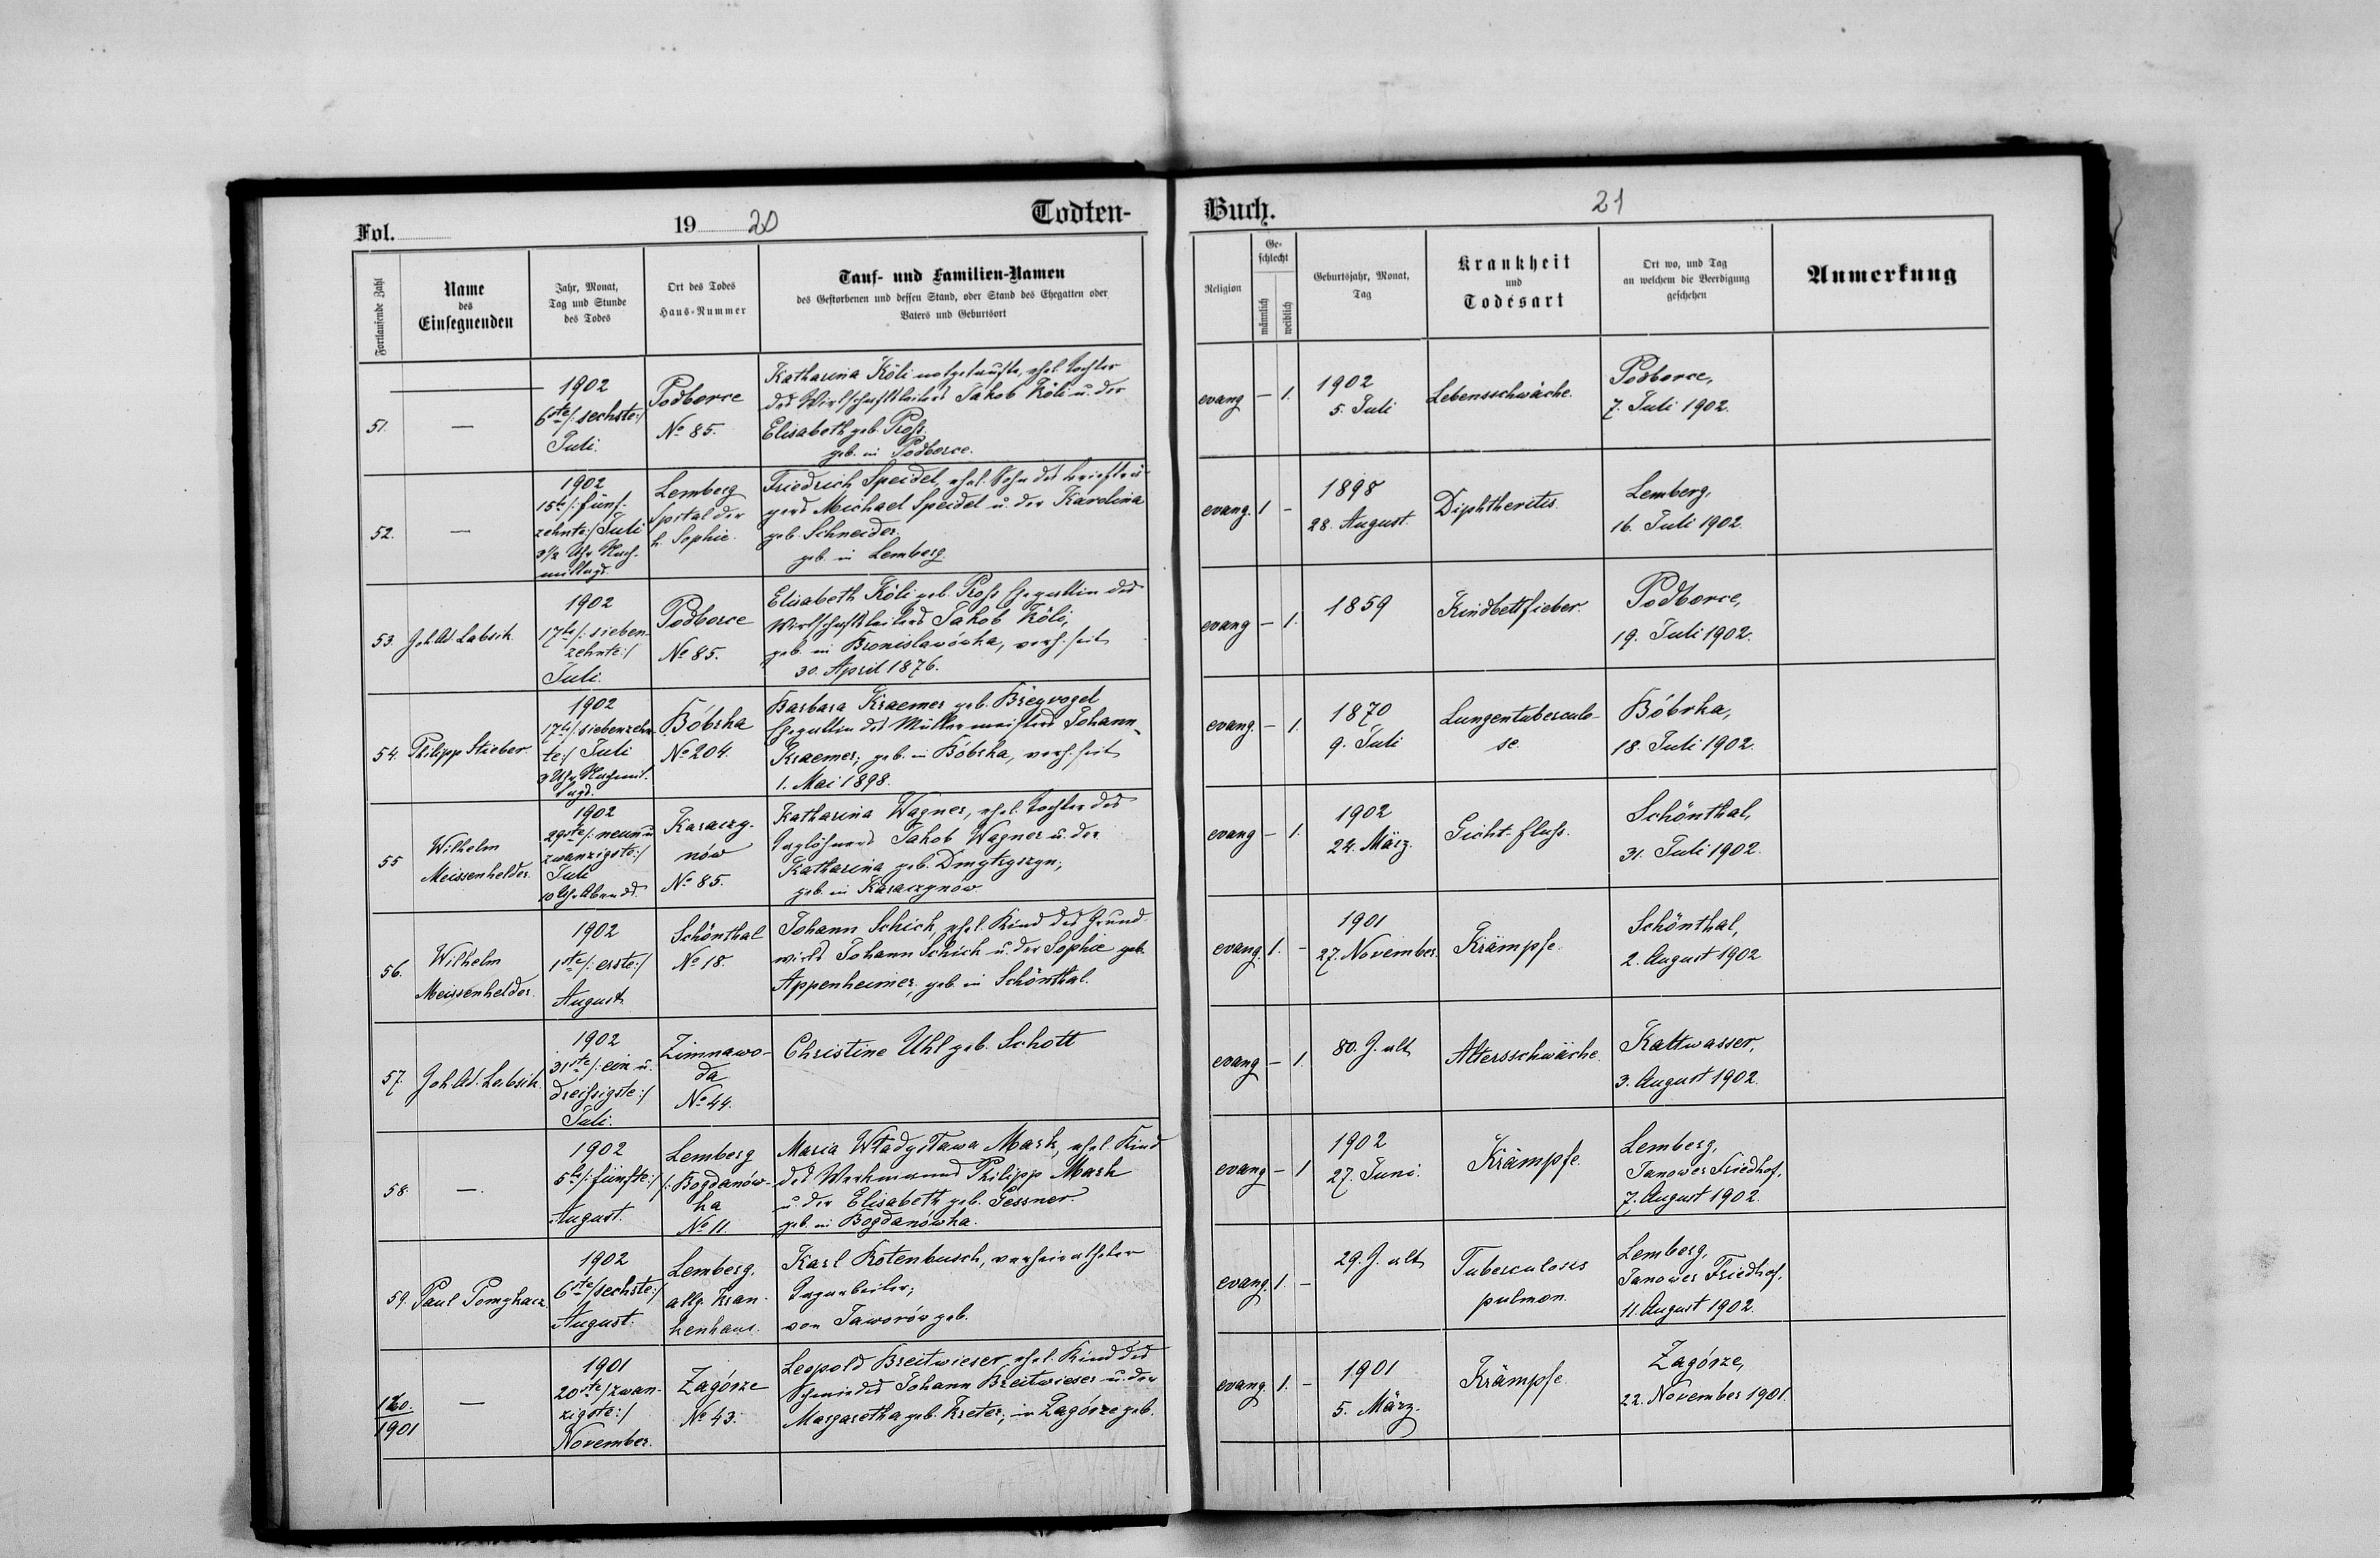 Fol. 19 20 Todten-
Fortlaufende Zahl
Name
des
Einsegnenden
Jahr, Monat,
Tag und Stunde
des Todes
Ort des Todes
Haus-Nummer
Tauf- und Familien-Namen
des Gestorbenen und dessen Stand, oder Stand des Ehegatten oder
Vaters und Geburtsort
Buch. 21
Religion
Ge-
schlecht
männlich
weiblich
Geburtsjahr, Monat,
Tag
Krankheit
und
Todesart
Ort wo, und Tag
an welchem die Beerdigung
geschehen
Anmerkung
51.
—
1902
6te/: sechste:/
Juli.
Podborce
No 85.
Katharina Köli notgetaufte, ehel. Tochter
des Wirtschaftsleiters Jakob Köli u. der
Elisabeth geb. Pross.
geb. in Podborce.
evang — 1.
1902
5. Juli
Lebensschwäche.
Podborce,
7. Juli 1902.
52.
—
1902
15te/: fünf-
zehnte:/ Juli
3½ Uhr Nach-
mittags.
Lemberg
Spital der
h. Sophie.
Friedrich Speidel, ehel. Sohn des Briefträ-
gers Michael Speidel u. der Karolina
geb. Schneider.
geb. in Lemberg.
evang. 1 -
1898
28. August.
Diphtheritis.
Lemberg,
16. Juli 1902.
53.
Joh. Ad. Labsik
1902
17te/: sieben-
zehnte:/
Juli.
Podborce
No 85.
Elisabeth Köli geb. Pross Ehegattin des
Wirtschaftsleiters Jakob Köli,
geb. in Bronislawówka, verh. seit
30. April 1876.
evang — 1.
1859
Kindbettfieber.
Podborce,
19. Juli 1902.
54.
Philipp Stieber
1902
17te/: siebenzehn-
te:/ Juli
3 Uhr Nachmit-
tags.
Bóbrka
No 204.
Barbara Kraemer geb. Bregvogel
Ehegattin des Müllermeisters Johann
Kraemer; geb. in Bóbrka, verh. seit
1. Mai 1898.
evang. — 1.
1870
9. Juli
Lungentuberculo-
se.
Bóbrka,
18. Juli 1902.
55
Wilhelm
Meissenhelder.
1902
29ste/: neun u.
zwanzigste:/
Juli
10 Uhr Abends.
Karaczy-
nów
No 85.
Katharina Wagner, ehel. Tochter des
Taglöhners Jakob Wagner u. der
Katharina geb. Dmytryszyn;
geb. in Karaczynów
evang — 1.
1902
24. März.
Gicht-fluss.
Schönthal,
31. Juli 1902.
56.
Wilhelm
Meissenhelder.
1902
1ste/: erste:/
August
Schönthal
No 18.
Johann Schick, ehel. Kind des Grund-
wirts Johann Schick u. der Sophie geb.
Appenheimer, geb. in Schönthal.
evang. 1. -
1901
27. November.
Krämpfe.
Schönthal,
2. August 1902
57.
Joh. Ad. Labsik.
1902
31ste/: ein u.
dreissigste:/
Juli.
Zimnawo-
da
No 44.
Christine Uhl geb. Schott
evang — 1.
80. J. alt
Altersschwäche.
Kaltwasser,
3. August 1902.
58.
—.
1902
5te/: fünfte:/
August.
Lemberg
/: Bogdanów-
ka
No 11.
Maria Władysława Mark, ehel. Kind
des Werkmanns Philipp Mark
u. der Elisabeth geb. Gessner.
geb. in Bogdanówka.
evang — 1
1902
27. Juni.
Krämpfe.
Lemberg,
Janower Friedhof,
7. August 1902.
59.
Paul Pomykacz.
1902
6ste/sechste:/
August.
Lemberg.
allg. Kran-
kenhaus.
Karl Rotenbusch, verheiratheter
Tagarbeiter;
von Jaworów geb.
evang. 1. -
29. J. alt
Tuberculosis
pulmon.
Lemberg,
Janower Friedhof,
11. August 1902.
1901
—
1901
20ste/zwan-
zigste:/
November.
Zagórze
No 43.
Leopold Breitwieser, ehel. Kind des
Schmiedes Johann Breitwieser u. der
Margaretha geb. Kreter; in Zagórze geb.
evang. 1. -
1901
5. März.
Krämpfe.
Zagórze,
22. November 1901.